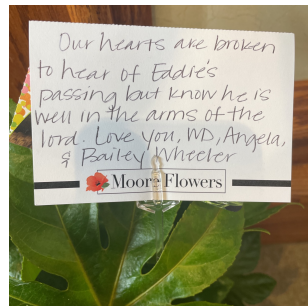 Our hearts are broken
to hear of Eddie's
passing but know he is
well in the arms of the
lord. Love you, WD, Angela,
& Bailey Wheeler
Moore Flowers